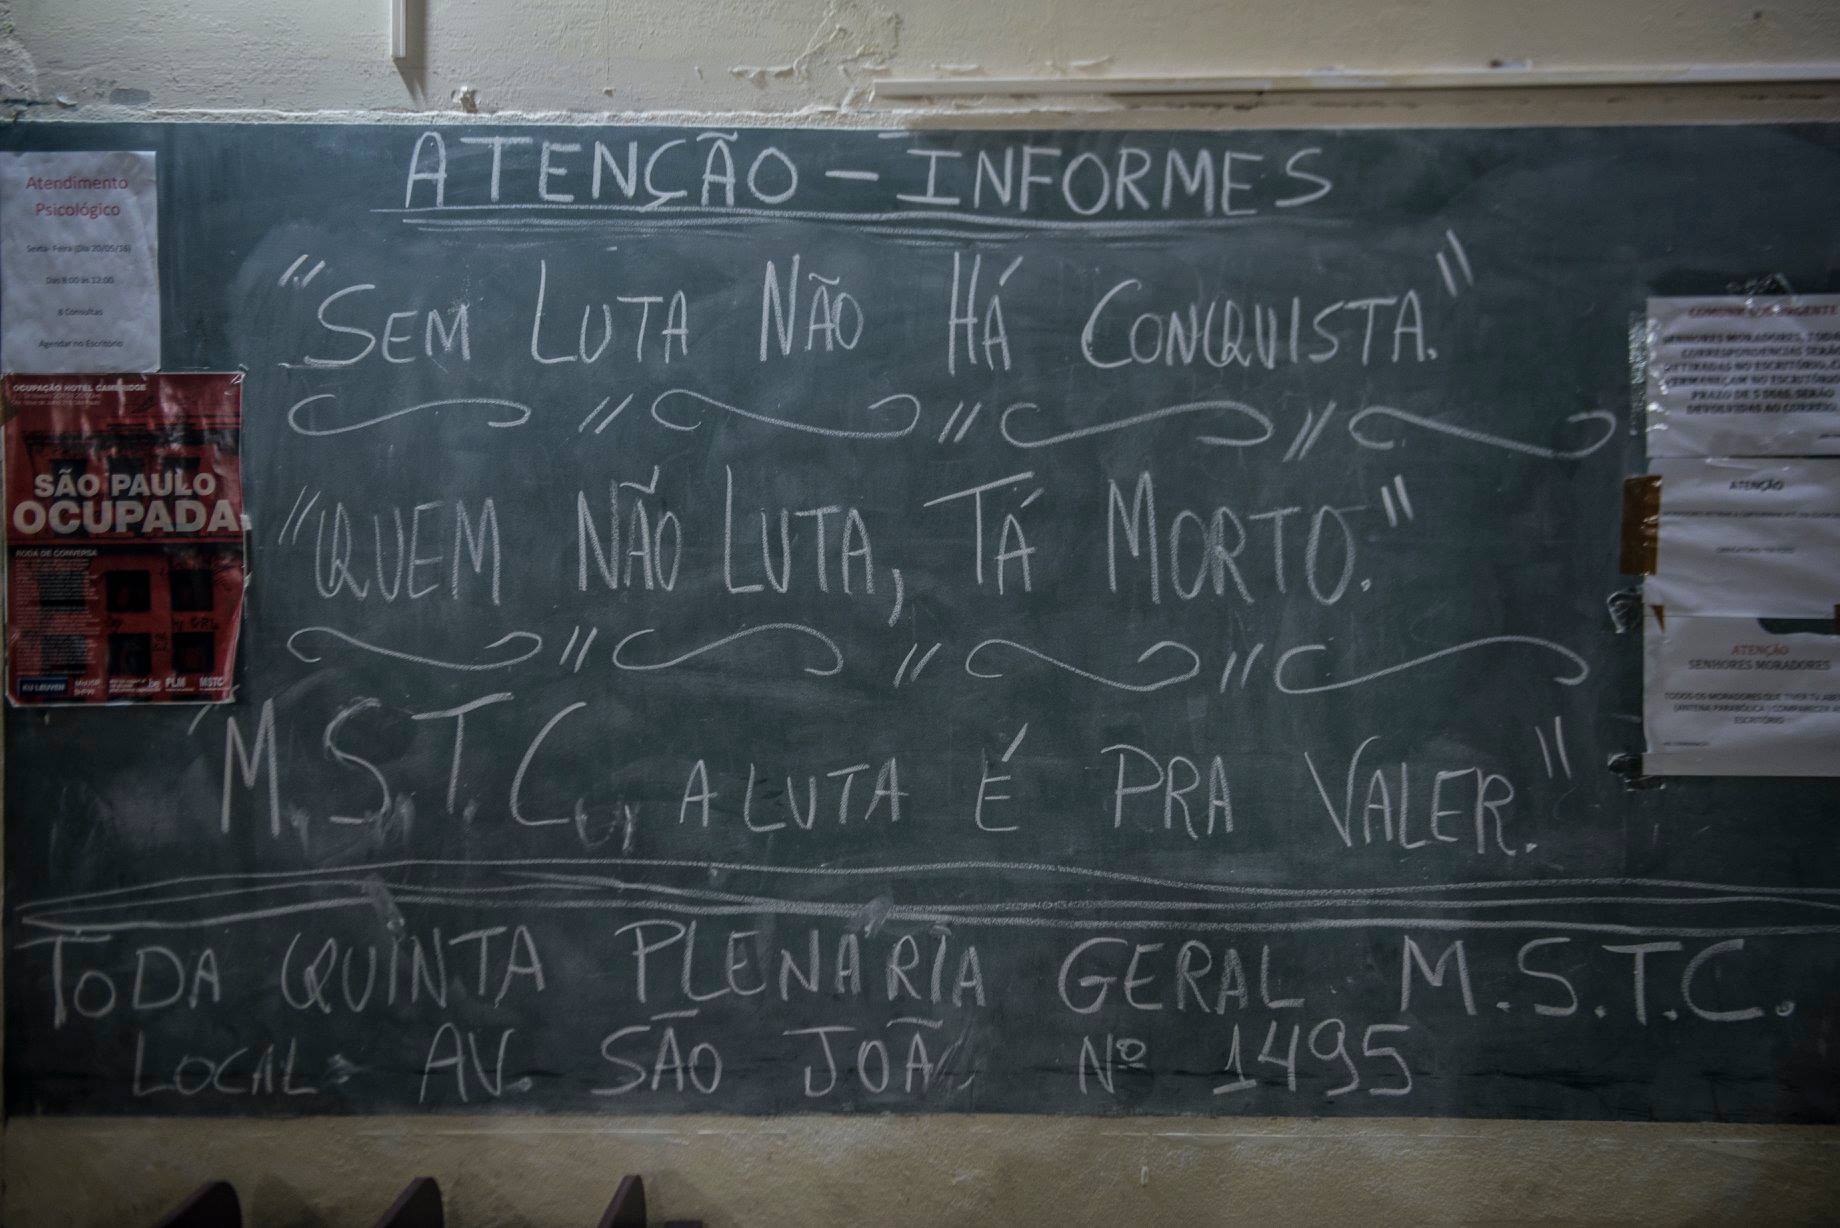 ATENÇÃO - INFORMES
"SEM LUTA NÃO HÁ CONQUISTA."
"QUEM NÃO LUTA, TÁ MORTO."
"M.S.T.C., A LUTA É PRA VALER."
TODA QUINTA PLENÁRIA GERAL M.S.T.C.
LOCAL: AV. SÃO JOÃ Nº 1495
Atendimento
Psicológico
Sexta- Feira (Dia 20/05/16)
Das 8:00 às 12:00
8 Consultas
Agendar no Escritório
OCUPAÇÃO HOTEL CAMBRIDGE
SÃO PAULO
OCUPADA
RODA DE CONVERSA
KU LEUVEN
FLM
MSTC
URGENTE
SENHORES MORADORES,
CORRESPONDENCIAS SERÃO
RETIRADAS NO ESCRITÓRIO,
PERMANEÇAM NO ESCRITÓRIO
PRAZO DE 5 DIAS, SERÃO
DEVOLVIDAS AO CORREIO
ATENÇÃO
ATENÇÃO
SENHORES MORADORES
TODOS OS MORADORES QUE TIVER TV
(ANTENA PARABÓLICA) COMPARECER
ESCRITÓRIO